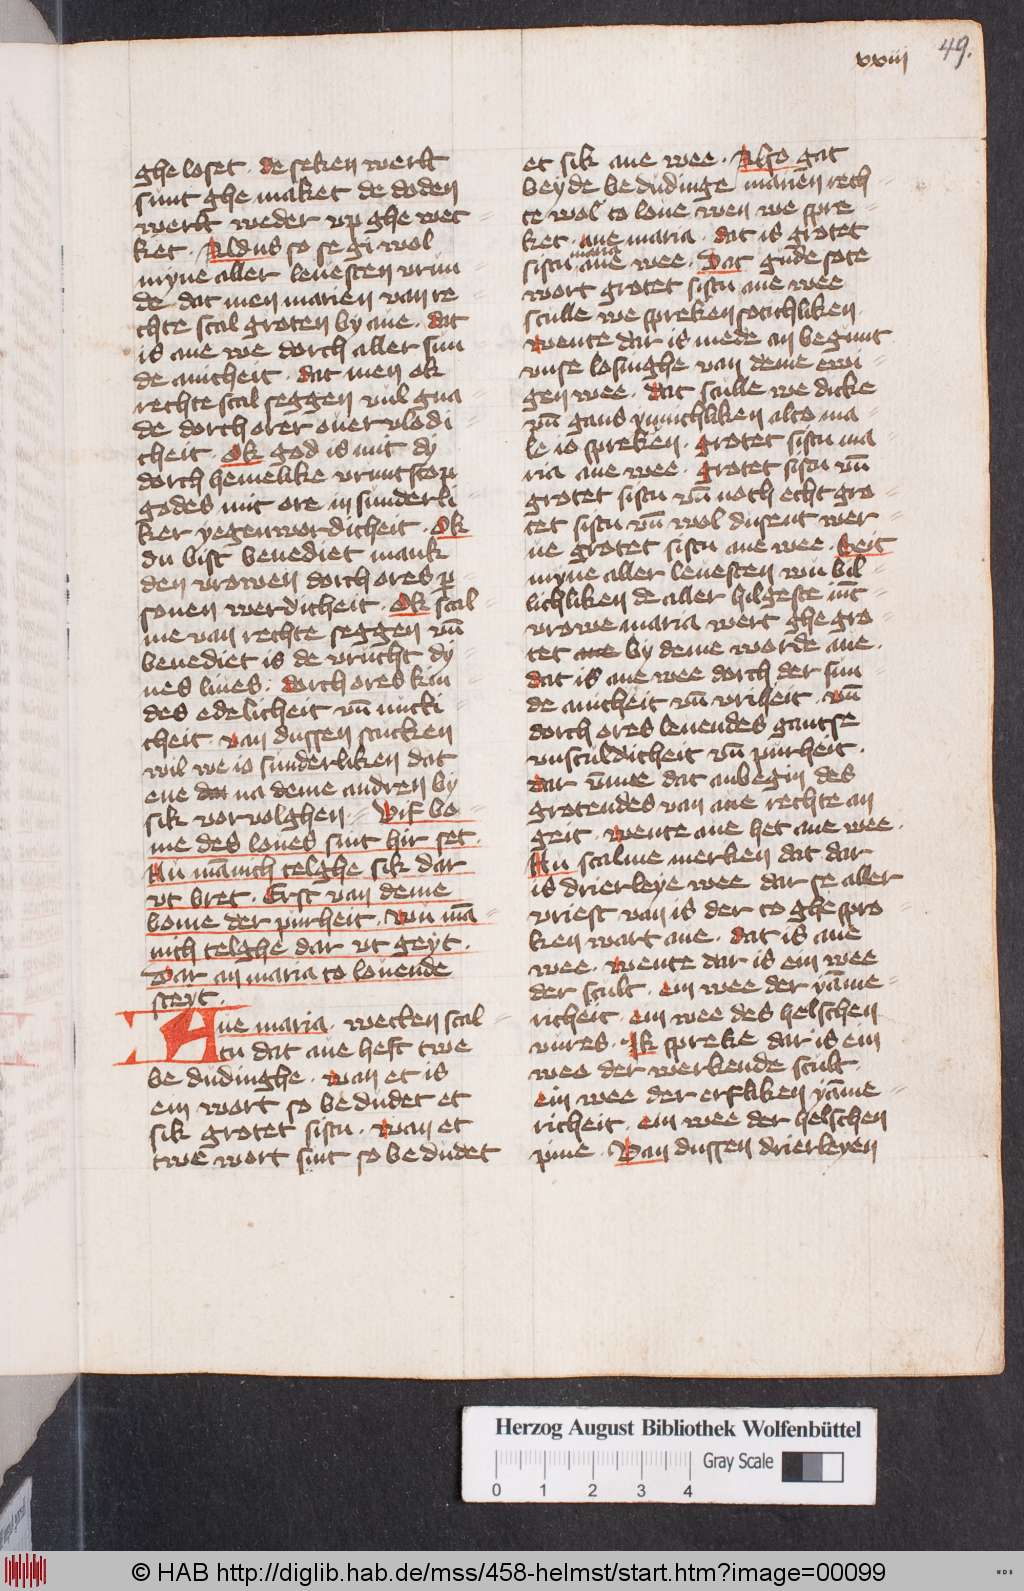 xxiij
49.
ghe loset. de seken werk
sint ghe maket de doden
werk weder vp ghe wec
ket. Aldus so se gi wol
myne aller leuesten vrun
de dat men marien van re
chte scal groten by aue. dat
is aue we dorch aller sun
de anicheit. dat men ok
rechte scal seggen vul gna
de dorch orer ouervlodi
cheit. Ok god is mit dy
dorch hemelike vruntscop
godes mit ore in sunderli
ker yegenwordicheit. Ok
du bist benediet mank
den vrowen dorch ores p̄
sonen werdicheit. Ok scal
me van rechte seggen vn̄
benediet is de vrucht dy
nes liues. dorch ores kin
des edelicheit vn̄ nutti
cheit. van dussen stucken
wil we io sunderliken dat
ene na deme andren by
sik vorvolghen. Vif bo
me des loues sint hir set.
An mānich telghe sik dar
vt bret. Erst van deme
bome der purheit. wu mā
nich telghe dar vt geyt.
Dar an maria to louende
steyt.
Aue maria. weten scal
tu dat aue heft twe
be dudinghe. wan et is
ein wort so bedudet et
sik grotet sistu. wan et
twe wort sint so bedudet
et sik ane wee. Also gat
beyde bedudinge marien rech
te wol to loue wen we spre
ket. aue maria. dat is grotet
sistu maria ane wee. Dat gude sote
wort grotet sistu ane wee
sculle we spreken sotichliken
wente dar is mede an begunt
vnse losinghe van deme ewi
gen wee. dat sculle we dicke
vn̄ gans ynnichliken alto ma
le io spreken. grotet sistu ma
ria ane wee. grotet sistu vn̄
grotet sistu vn̄ noch echt gro
tet sistu vn̄ wol dusent wer
ue grotet sistu ane wee. Seit
myne aller leuesten wu bil
lichliken de aller hilgeste iūc
vrowe maria wert ghe gro
tet by deme worde aue.
dat is ane wee dorch der sun
de anicheit vn̄ vriheit. vn̄
dorch ores leuendes gantse
vnsculdicheit vn̄ purheit.
dar vmme dat anbegin des
grotendes van aue rechte an
geit. wente aue het ane wee.
Nu scalme merken dat dar
is drierleye wee dar se aller
vriest van is der to ghe spro
ken wart aue. dat is ane
wee. wente dar is ein wee
der scult. ein wee der yāme
richeit. ein wee des helschen
vures. Ik spreke dar is ein
wee der werkende scult.
ein wee der erfliken yāme
richeit. ein wee der helschen
pine. Van dussen drierleyen
Herzog August Bibliothek Wolfenbüttel
Gray Scale
0 1 2 3 4
© HAB http://diglib.hab.de/mss/458-helmst/start.htm?image=00099